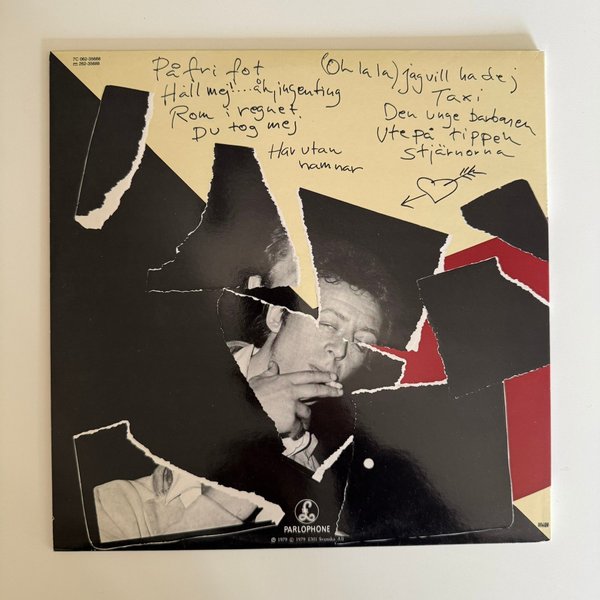 7C 062-35688
262-35688
På fri fot
Håll mej!....åh, ingenting
Rom i regnet
Du tog mej
Hav utan
namnar
(Oh la la) jag vill ha dej
Taxi
Den unge barbaren
Ute på tippen
Stjärnorna
PARLOPHONE
℗ 1979 © 1979 EMI Svenska AB